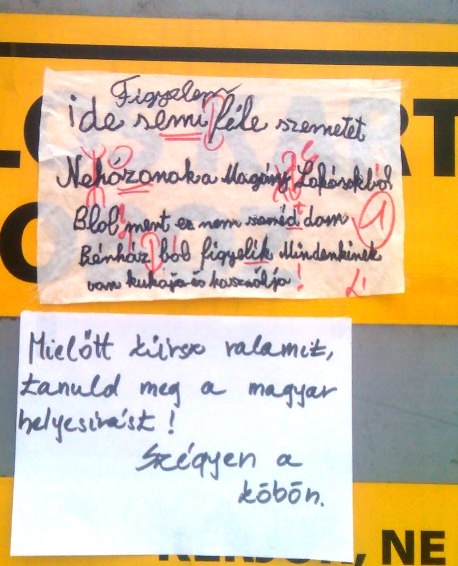 Figyelem
ide semi féle szemetet
Neházanak a Magány Lakásokból
Blol ment ez nem szeméd dom
Bérház ból figyelik Mindenkinek
van kukaja és használja!
1
Mielőtt kiírsz valamit,
tanuld meg a magyar
helyesírást!
Szégyen a
köbön.
, NE